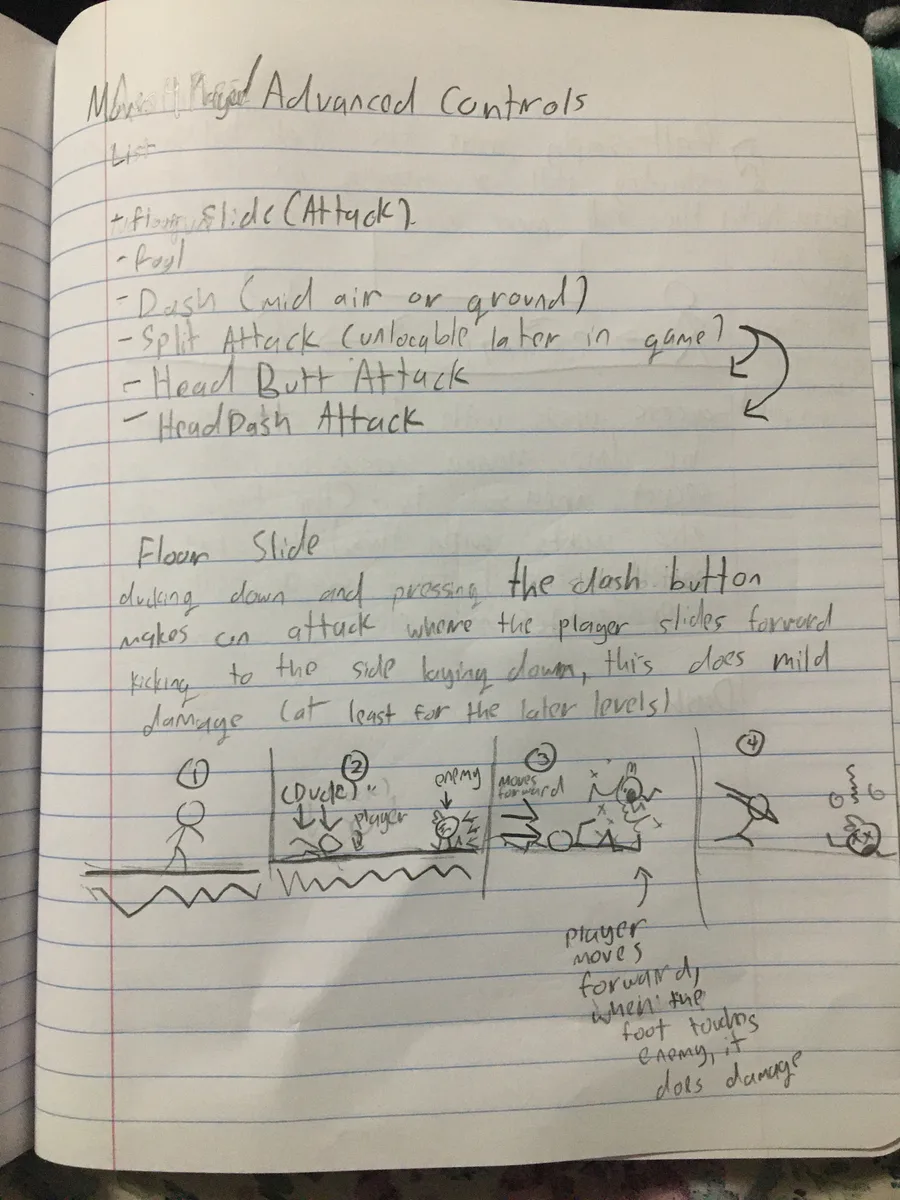 Advanced Controls
List
Slide (Attack)
-
- Dash (mid air or ground)
- Split Attack (unlocable later in game)
- Head Butt Attack
- HeadDash Attack
Floor Slide
ducking down and pressing the dash button
makes an attack where the player slides forward
kicking to the side laying down, this does mild
damage (at least for the later levels)
1
2
(Duck)
player
enemy
3
moves
forward
4
player
moves
forward,
when the
foot touchs
enemy, it
does damage